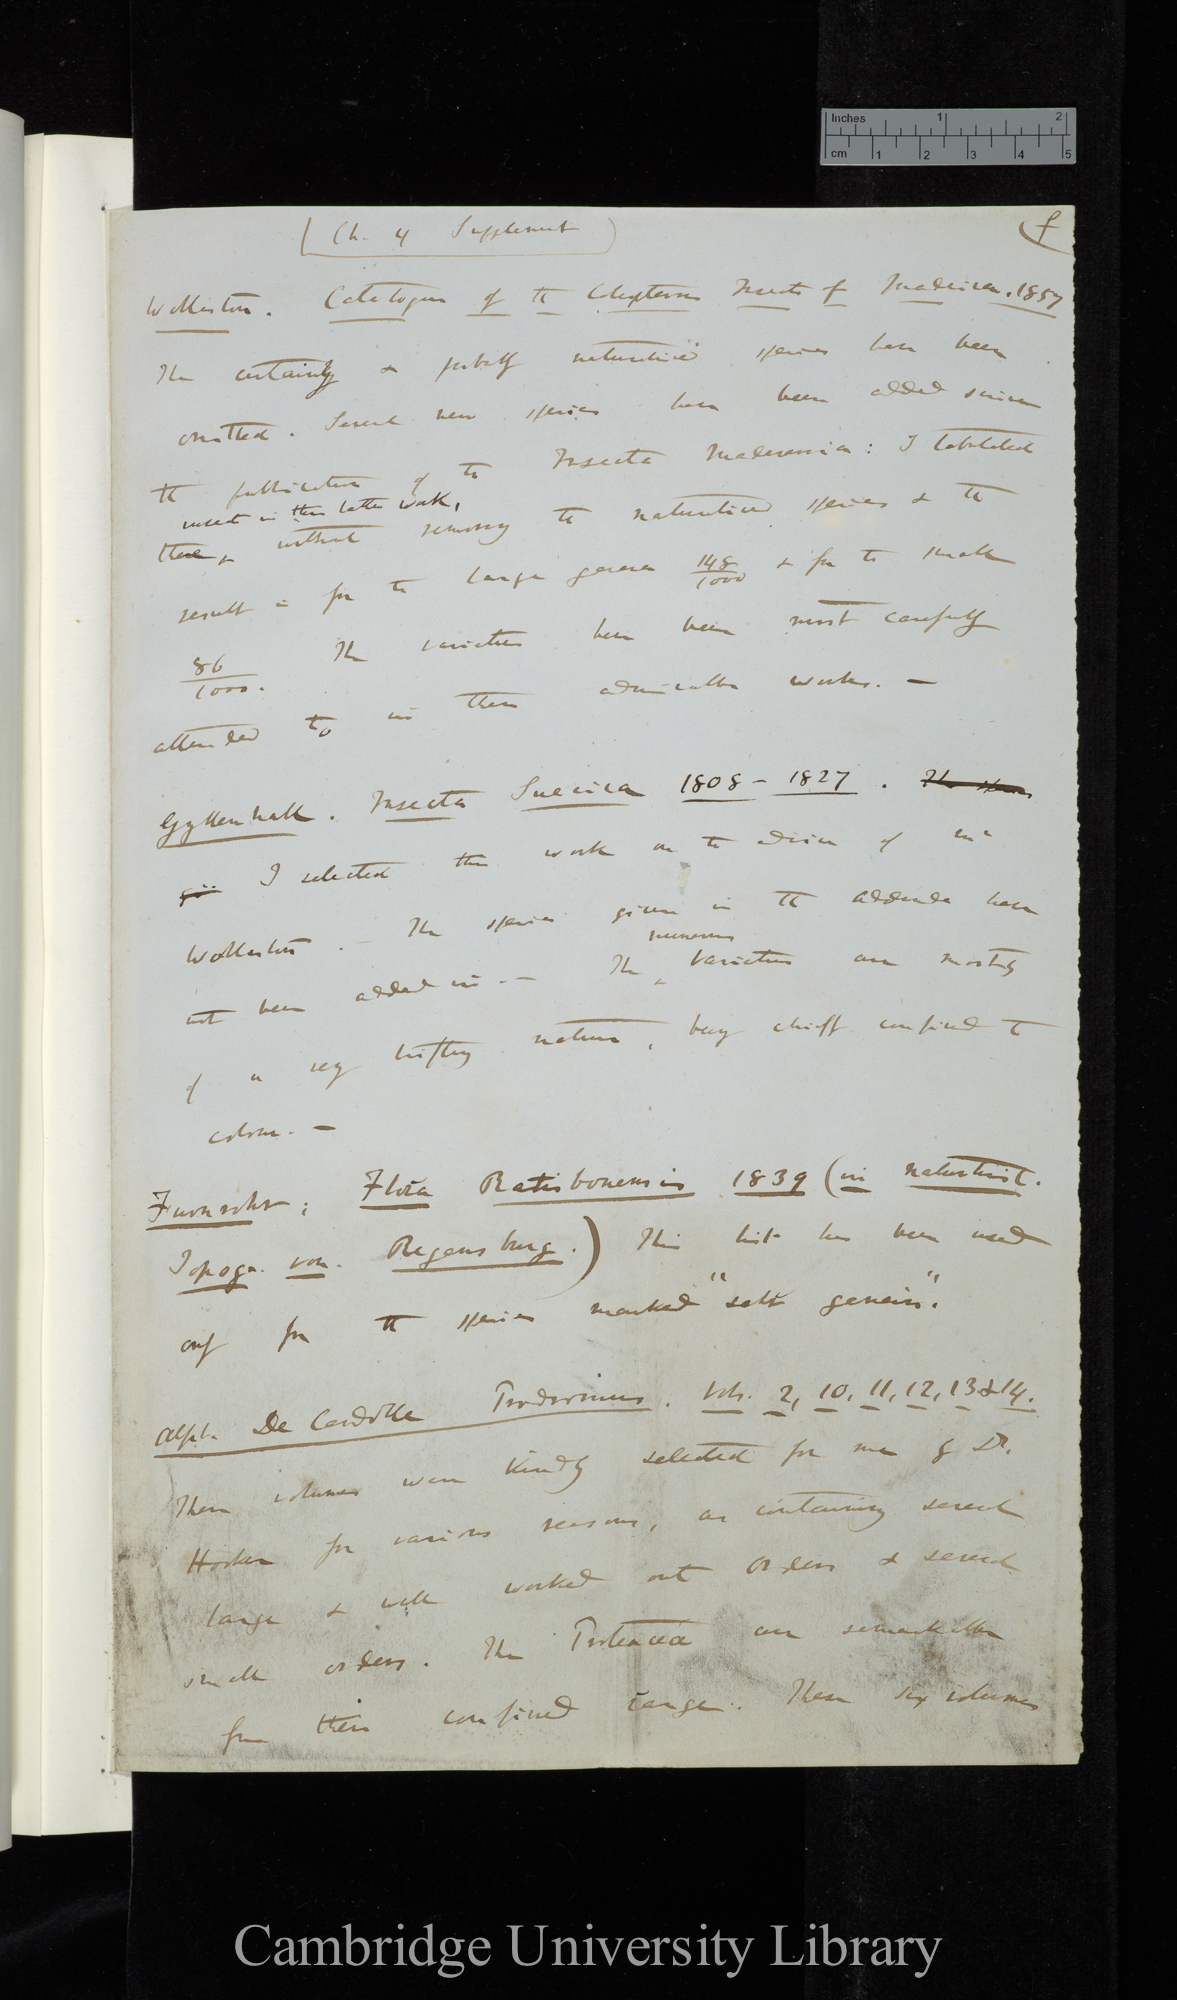 Inches 1 2
cm 1 2 3 4 5
(Ch. 4 Supplement)
f
Wollaston. Catalogue of the Coleopterous Insects of Madeira. 1857
The certainly & probably naturalised species have been
omitted. Several new species have been added since
the publication of the Insecta Maderensia: I tabulated
insects in this latter work,
these & without removing the naturalised species & the
result is for the larger genera 148/1000 & for the small
86/1000. The varieties have been most carefully
attended to in these admirable works. —
Gyllenhall. Insecta Suecica 1808 - 1827. The species
I selected this work on the advice of Mr
Wollaston. — The species given in the addenda have
numerous
not been added in. — The varieties are mostly
of a very trifling nature, being chiefly confined to
colour. —
Fuernrohr; Flora Ratisbonensis 1839 (in Naturhist.
Topogr. von. Regensburg.) This list has been used
only for the species marked "sehr gemein".
Alph. De Candolle Prodromus. Vols. 2, 10, 11, 12, 13 & 14.
These volumes were kindly selected for me by Dr.
Hooker for various reasons, as containing several
large & well worked out orders & several
small orders. The Proteaceæ are remarkable
from their confined range. These six volumes
Cambridge University Library